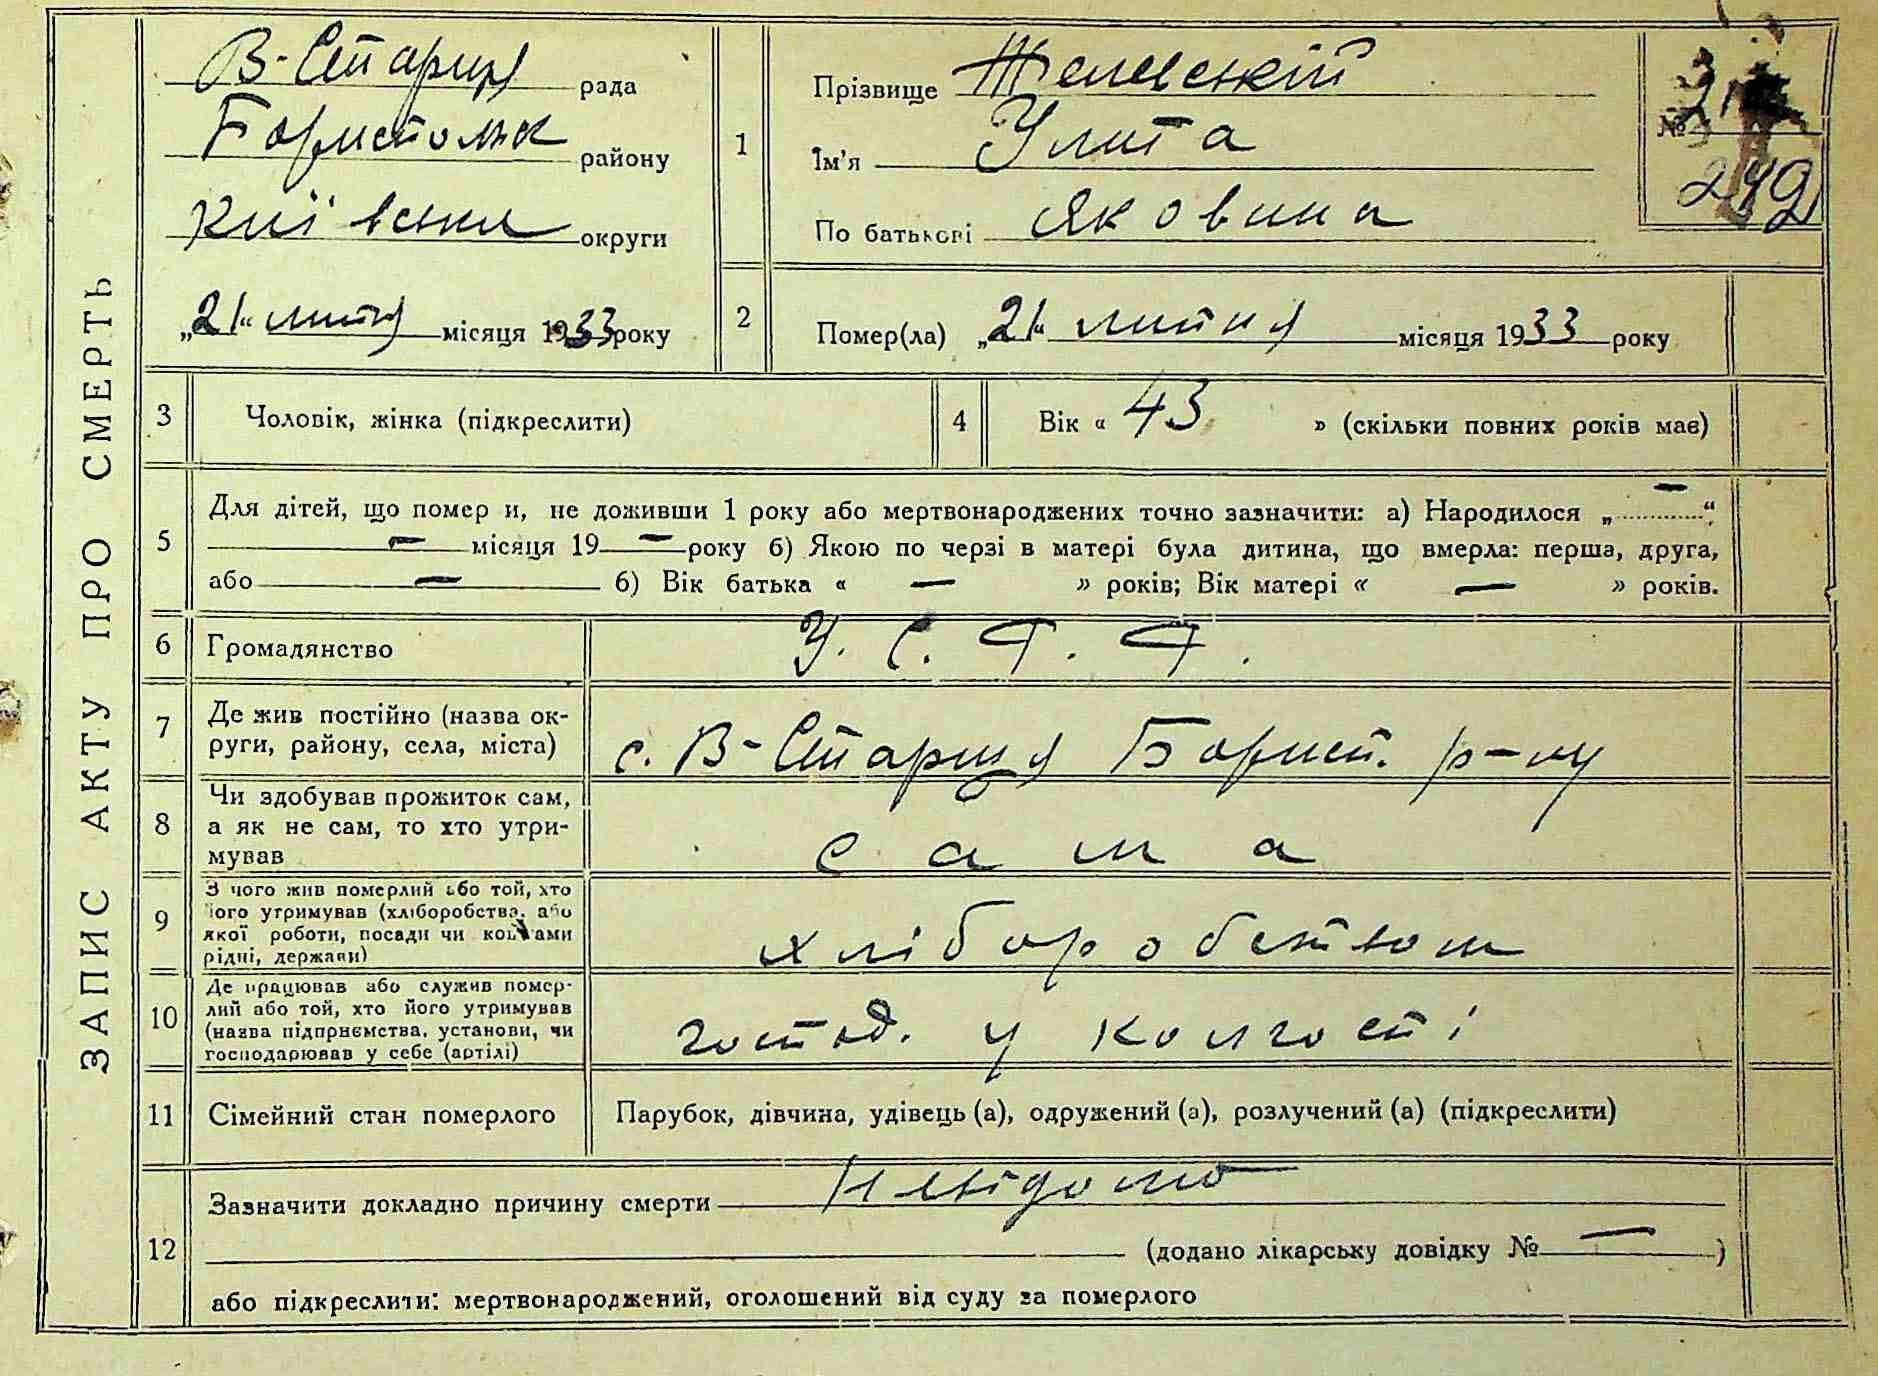 ЗАПИС АКТУ ПРО СМЕРТЬ
В-Стариця рада
району
округи
„21“ лютня місяця 1933 року
1
Прізвище
Ім'я Улита
По батькові Яковина
№
249
2
Помер(ла) „21“ лютня місяця 1933 року
3
Чоловік, жінка (підкреслити)
4
Вік « 43 » (скільки повних років має)
5
Для дітей, що помер и, не доживши 1 року або мертвонароджених точно зазначити: а) Народилося „ — “
— місяця 19 — року б) Якою по черзі в матері була дитина, що вмерла: перша, друга,
або — б) Вік батька « — » років; Вік матері « — » років.
6
Громадянство
У. С. Р. Р.
7
Де жив постійно (назва ок-
руги, району, села, міста)
с. В-Стариця Борисп. р-ну
8
Чи здобував прожиток сам,
а як не сам, то хто утри-
мував
сама
9
З чого жив померлий або той, хто
його утримував (хліборобства, або
якої роботи, посади чи коштами
рідні, держави)
хліборобством
10
Де працював або служив помер-
лий або той, хто його утримував
(назва підприємства, установи, чи
господарював у себе (артілі)
господ. у колгоспі
11
Сімейний стан померлого
Парубок, дівчина, удівець (а), одружений (а), розлучений (а) (підкреслити)
12
Зазначити докладно причину смерти Невідомо
(додано лікарську довідку № — )
або підкреслити: мертвонароджений, оголошений від суду за померлого